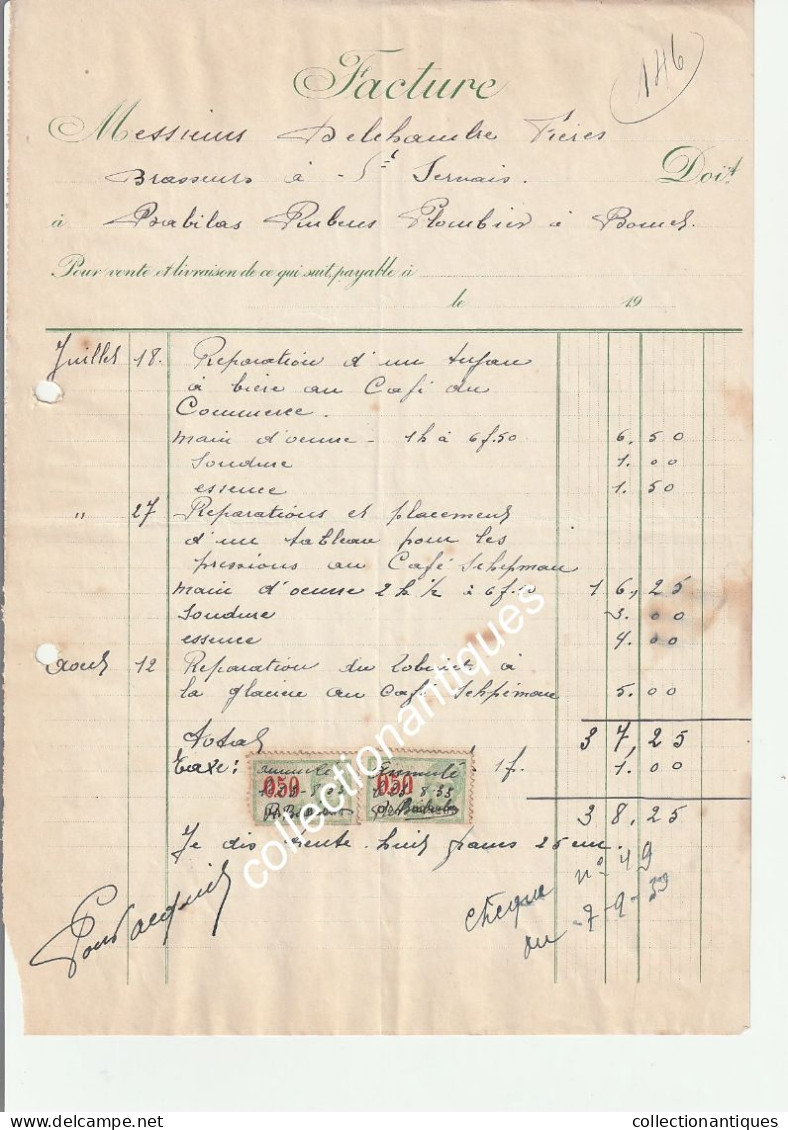 Facture
146
Messieurs Delchambre Frères
Brasseurs à St Servais. Doit
à Babilas Rubens Plombier à Bomel.
Pour vente et livraison de ce qui suit, payable à
le 19
Juillet 18. Reparation d'un tuyau
à bière au Café du
Commerce.
main d'oeuvre - 1h à 6f.50 6,50
Soudure 1.00
essence 1.50
" 27 Reparations et placement
d'un tableau pour les
pressions au Café Schepman
main d'oeuvre 2h 1/2 à 6f.50 16,25
Soudure 3.00
essence 4.00
Aout 12 Reparation du robinet à
la glacière au Café Schépman 5.00
Total 37,25
Taxe: 1f. 1.00
annulé annulé
050 050
8-33
38,25
Je dis trente huit francs 25 cm.
Pour acquit
chèque n° 49
du -7-9-33
collectionantiques
collectionantiques